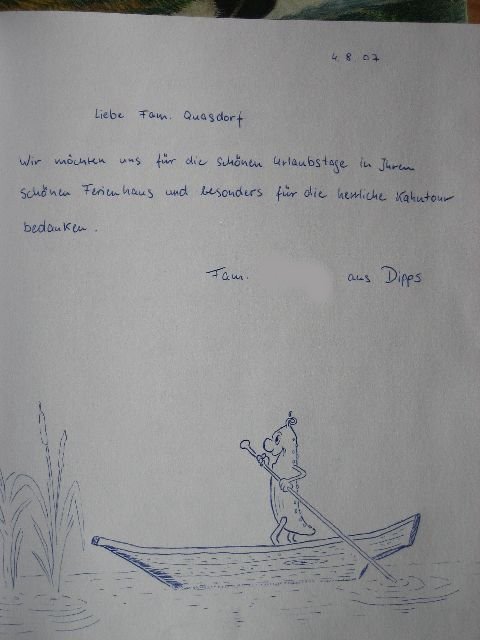 4.8.07
Liebe Fam. Quasdorf
Wir möchten uns für die schönen Urlaubstage in Ihrem
schönen Ferienhaus und besonders für die herrliche Kahntour
bedanken.
Fam. aus Dipps